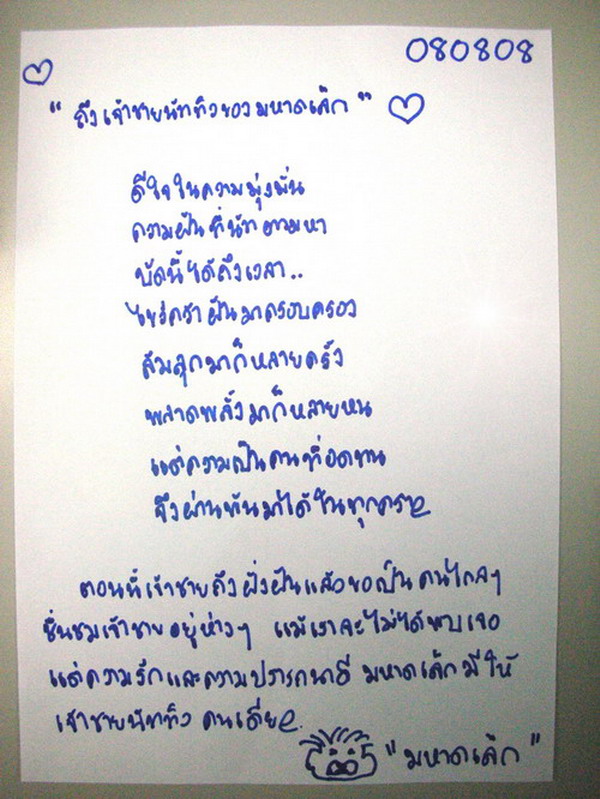 080808
" ถึงเจ้าชายนัททิวของมหาดเล็ก "
ดีใจในความมุ่งมั่น
ความฝันที่นัทตามหา
บัดนี้ได้ถึงเวลา..
ไขว่คว้าฝันมาครอบครอง
ล้มลุกมาก็หลายครั้ง
พลาดพลั้งมาก็หลายหน
แต่ความเป็นคนที่อดทน
จึงผ่านพ้นมาได้ในทุกคราว
ตอนนี้เจ้าชายถึงฝั่งฝันแล้วขอเป็นคนไกลๆ
ชื่นชมเจ้าชายอยู่ห่างๆ แม้เราจะไม่ได้พบเจอ
แต่ความรักและความปรารถนาดี มหาดเล็กมีให้
เจ้าชายนัททิว คนเดียว
" มหาดเล็ก "